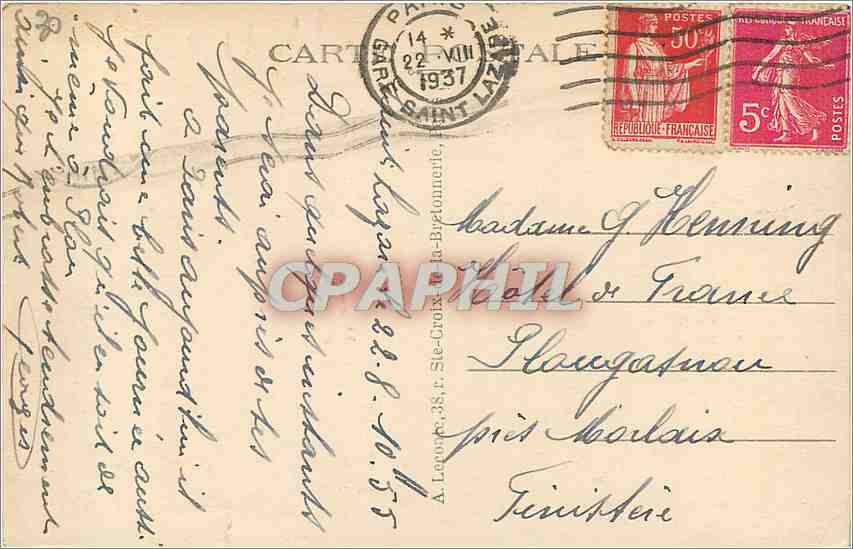 CARTE POSTALE
PARIS
GARE SAINT LAZARE
14 *
22 VIII
1937
POSTES
50c
RÉPUBLIQUE FRANÇAISE
REPUBLIQUE FRANÇAISE
5c
POSTES
CPARPHIL
A. Leconte, 38, r. Ste-Croix-de-la-Bretonnerie,
Lazare 22.8. 10H55
Dans quelques instants
je serai auprès de tes
parents
a Paris aujourd'hui il
fait une belle journée aussi
je voudrais qu'il en soit de
même à Plou
je t'embrasse tendrement
ainsi que
Georges
Madame G Henning
Hôtel de France
Plougasnou
près Morlaix
Finistère